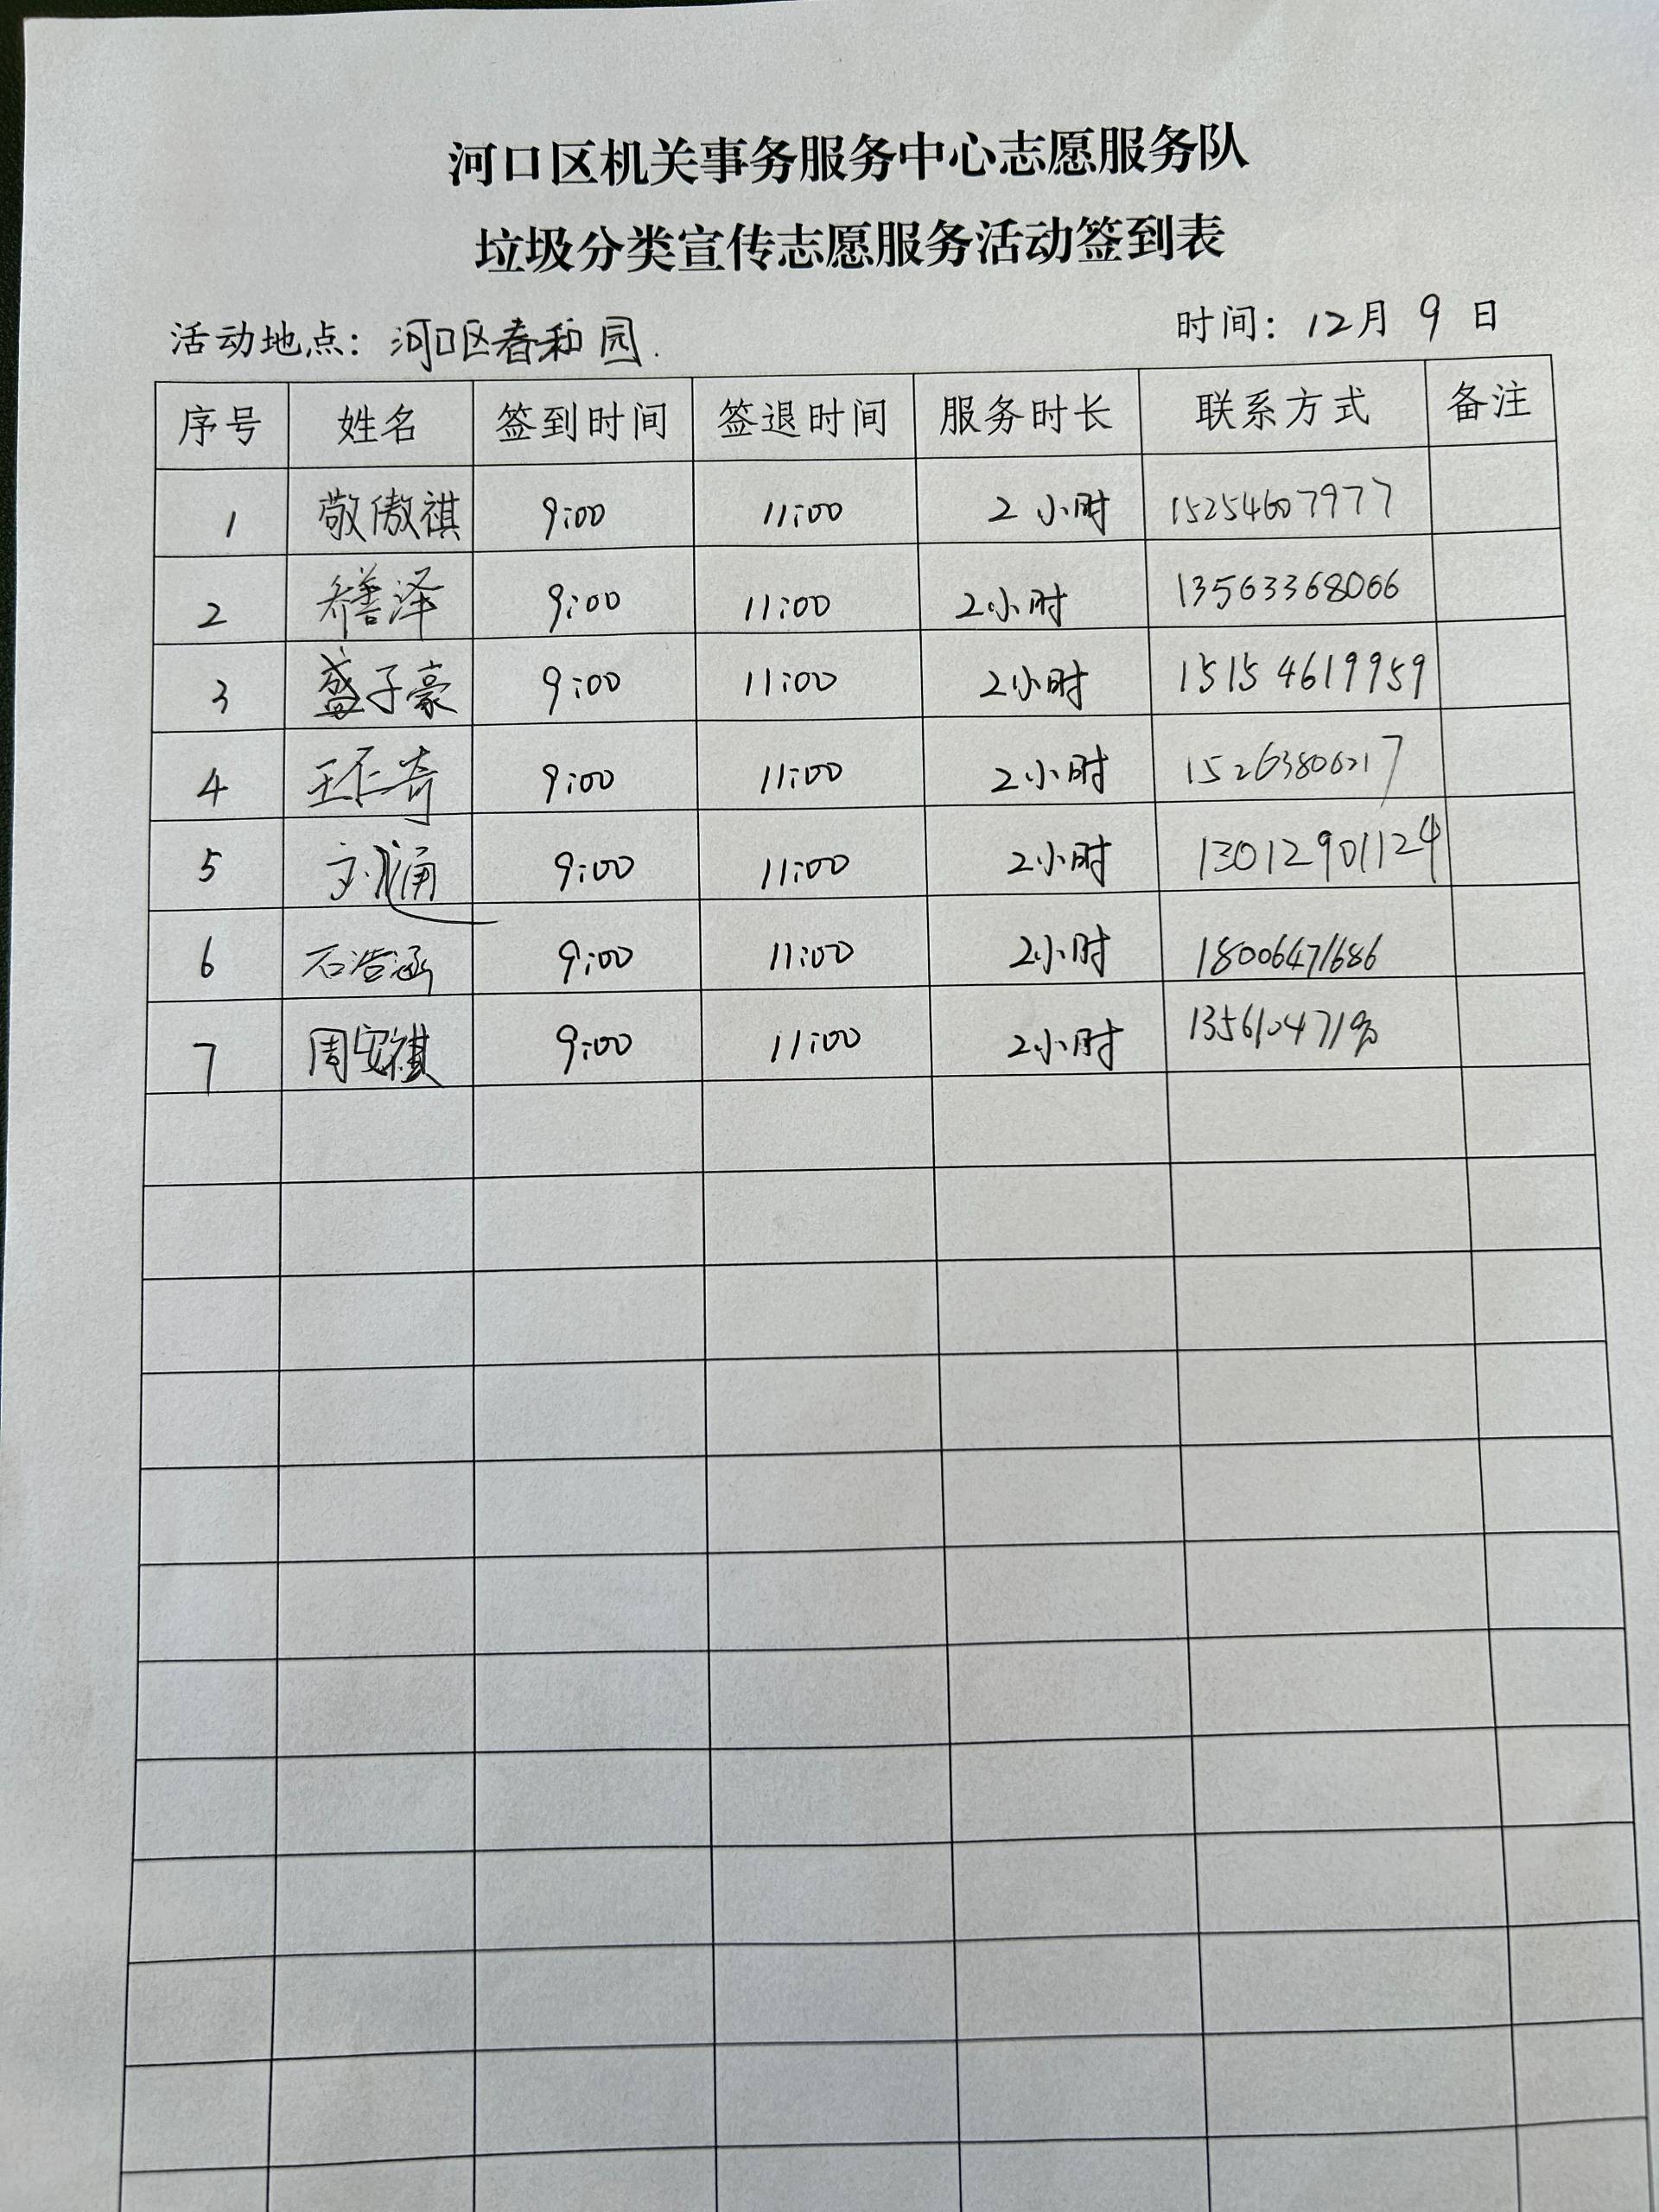 河口区机关事务服务中心志愿服务队
垃圾分类宣传志愿服务活动签到表
活动地点：河口区春和园. 时间：12月9日
序号 姓名 签到时间 签退时间 服务时长 联系方式 备注
1 敬傲祺 9:00 11:00 2小时 15254607977
2 乔善泽 9:00 11:00 2小时 13563368066
3 盛子豪 9:00 11:00 2小时 15154619959
4 王仁奇 9:00 11:00 2小时
5 刘涌 9:00 11:00 2小时 13012901124
6 石浩涵 9:00 11:00 2小时 18006471686
7 周安祺 9:00 11:00 2小时